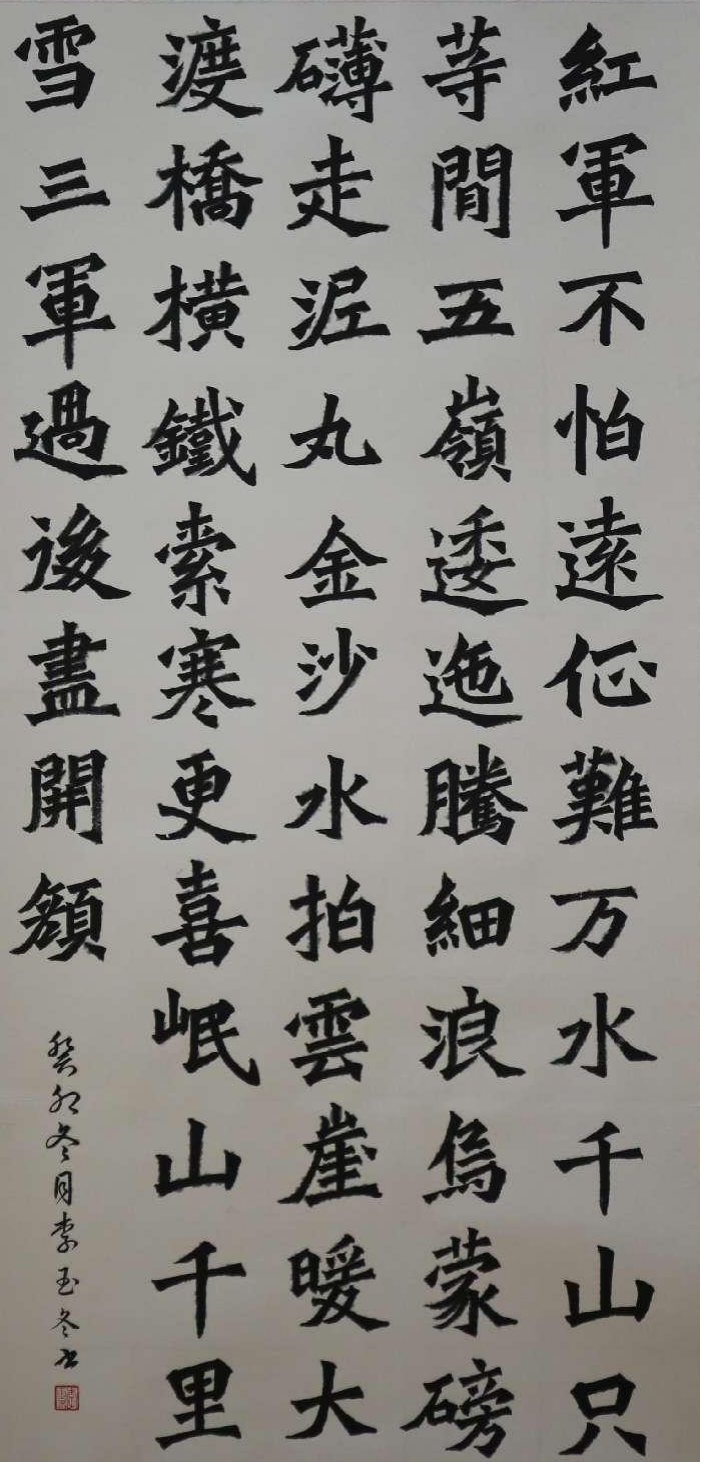 紅軍不怕遠征難万水千山只
等閒五嶺逶迤騰細浪烏蒙磅
礴走泥丸金沙水拍雲崖暖大
渡橋橫鐵索寒更喜岷山千里
雪三軍過後盡開顏
癸卯冬月李玉冬书